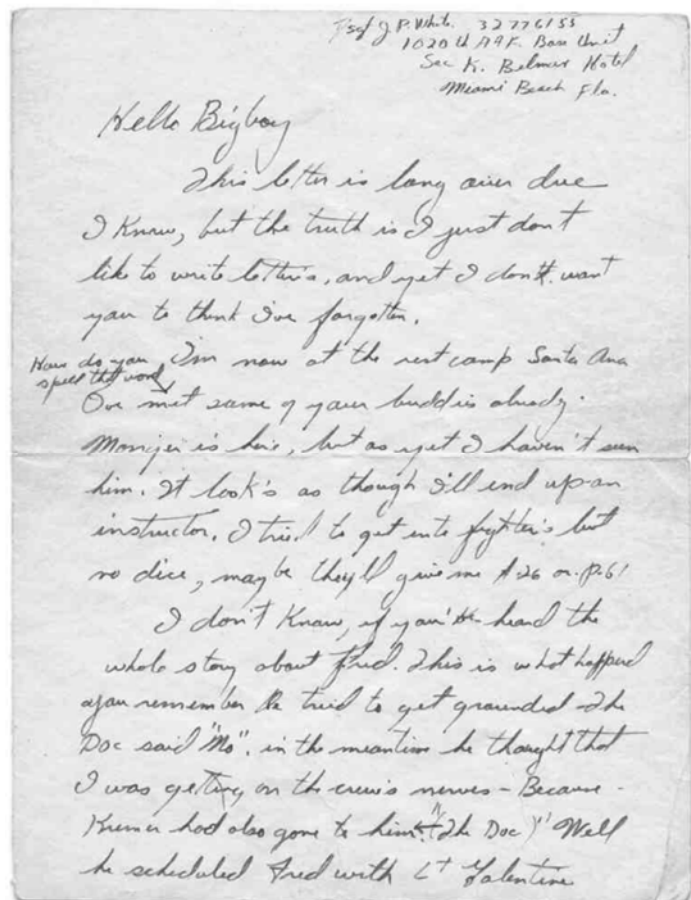 Psgf J P. White. 32776155
1020th AAF. Base Unit
Sec K. Belmar Hotel
Miami Beach Fla.
Hello Bigboy
This letter is long over due
I know, but the truth is I just don't
like to write letter's, and yet I don't want
you to think I've forgotten.
How do you
spell that word
I'm now at the rest camp Santa Ana
I've met some of your buddies already.
is here, but as yet I haven't seen
him. It look's as though I'll end up an
instructor. I tried to get into fighter's but
no dice, maybe they'll give me A-26 or P-61
I don't know, if you've heard the
whole story about Fred. This is what happend
you remember he tried to get grounded - The
Doc said "No". in the meantime he thought that
I was getting on the crew's nerves - Because -
Kremer had also gone to him. "(The Doc)" Well
he scheduled Fred with Lt Valentine